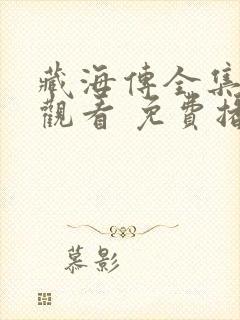 藏海傳全集
觀看 免費播
慕影